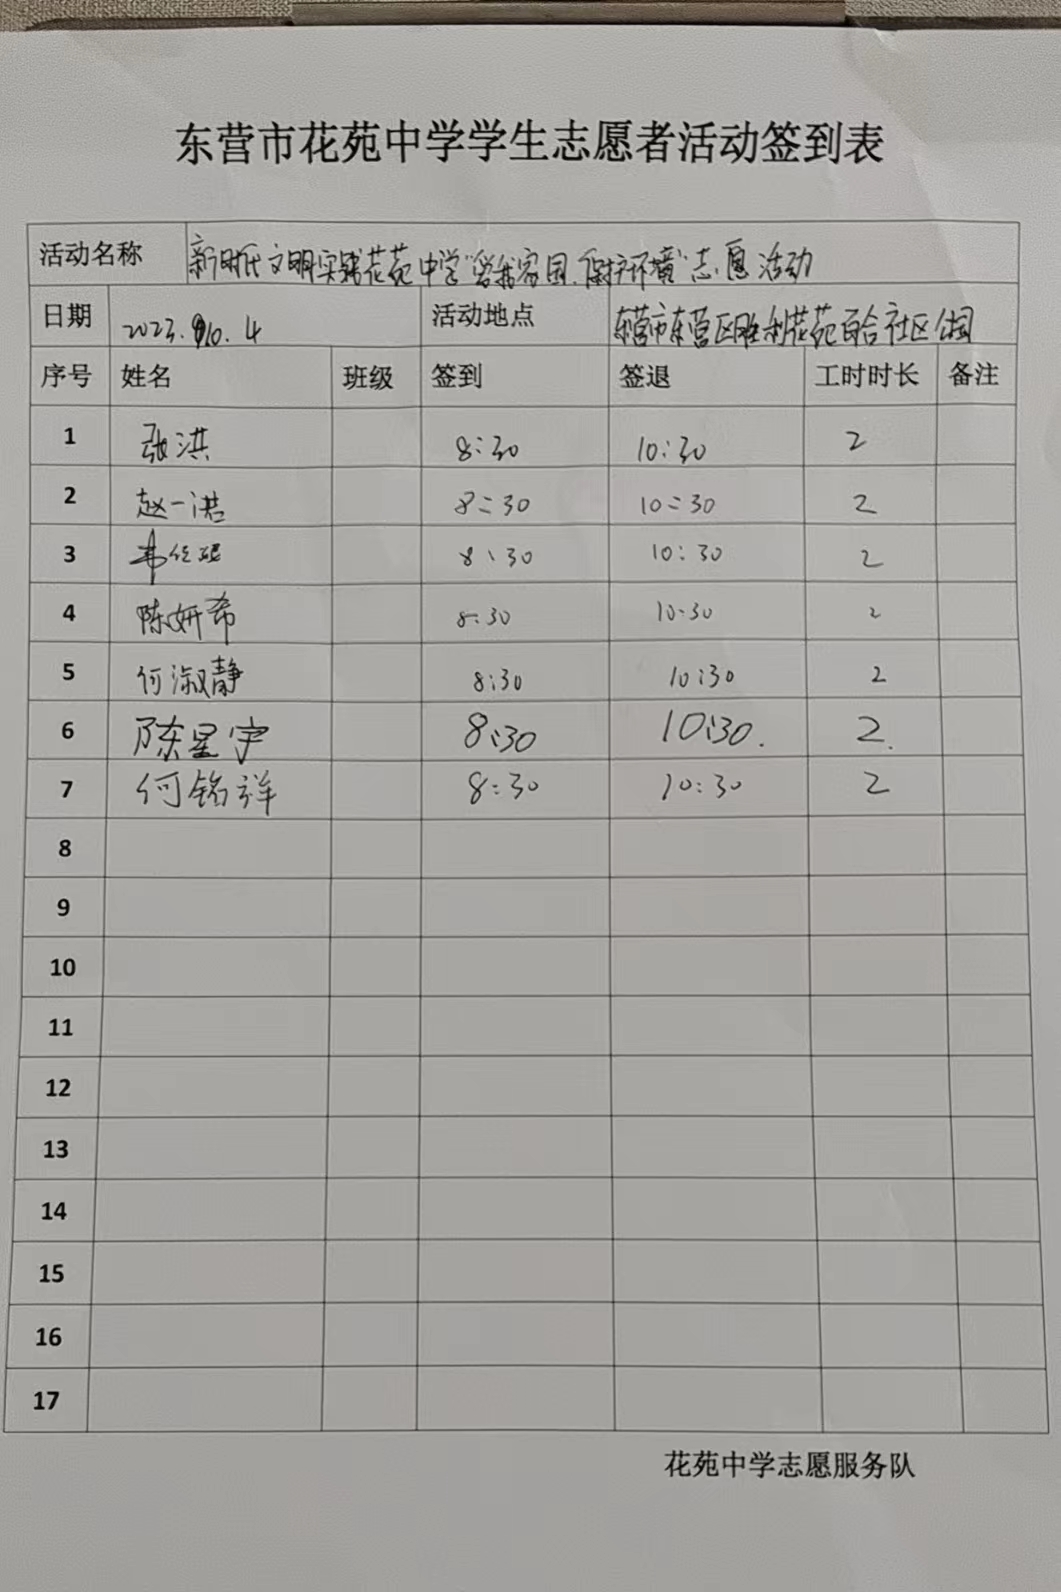 东营市花苑中学学生志愿者活动签到表
活动名称 新时代文明实践花苑中学“爱我家园、保护环境”志愿活动
日期 2023.10.4 活动地点 东营市东营区胜利花苑百合社区公园
序号 姓名 班级 签到 签退 工时时长 备注
1 张洪 8:30 10:30 2
2 赵一诺 8:30 10:30 2
3 8:30 10:30 2
4 陈妍希 8:30 10:30 2
5 何淑静 8:30 10:30 2
6 陈星宇 8:30 10:30. 2.
7 何铭祥 8:30 10:30 2
8
9
10
11
12
13
14
15
16
17
花苑中学志愿服务队